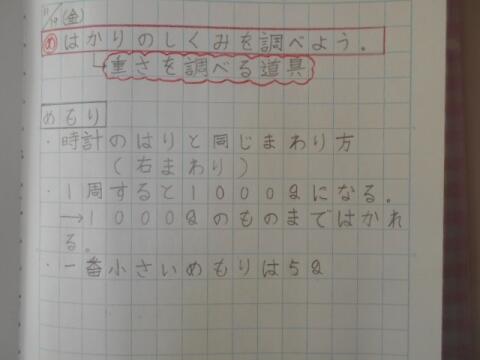 11/19(金)
め はかりのしくみを調べよう。
重さを調べる道具
めもり
・時計のはりと同じまわり方
(右まわり)
・1周すると1000gになる。
→1000gのものまではかれ
る。
・一番小さいめもりは5g